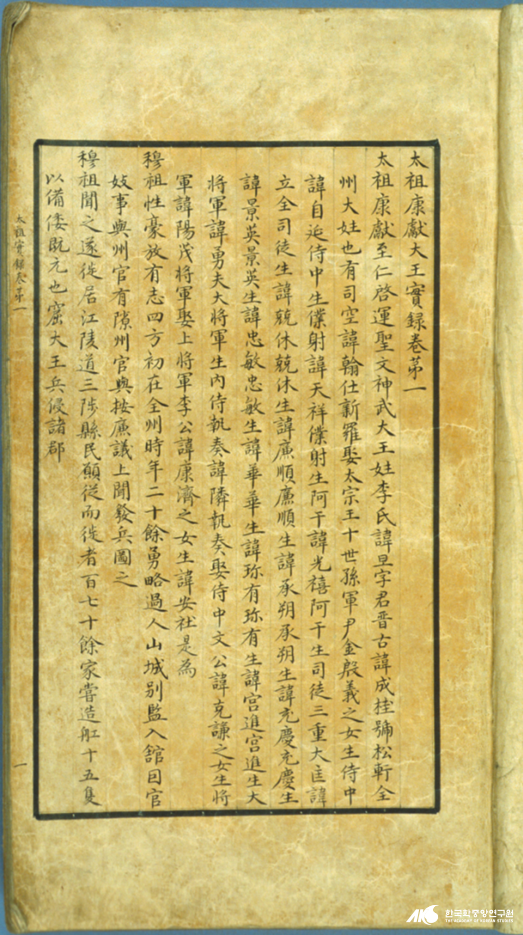 太祖康獻大王實録卷苐一
太祖康獻至仁啓運聖文神武大王姓李氏諱旦字君晋古諱成桂號松軒全
州大姓也有司空諱翰仕新羅娶太宗王十世孫軍尹金殷義之女生侍中
諱自延侍中生僕射諱天祥僕射生阿干諱光禧阿干生司徒三重大匡諱
立全司徒生諱兢休兢休生諱廉順廉順生諱承朔承朔生諱充慶充慶生
諱景英景英生諱忠敏忠敏生諱華華生諱珎有珎有生諱宫進宫進生大
將軍諱勇夫大將軍生内侍執奏諱隣執奏娶侍中文公諱克謙之女生將
軍諱陽茂將軍娶上將軍李公諱康濟之女生諱安社是為
穆祖性豪放有志四方初在全州時年二十餘勇略過人山城别監入舘因官
妓事與州官有隙州官與按廉議上聞發兵圖之
穆祖聞之遂徙居江陵道三陟縣民願從而徙者百七十餘家嘗造舡十五隻
以備倭既元也窟大王兵侵諸郡
太祖實録卷苐一
一
AKS 한국학중앙연구원
THE ACADEMY OF KOREAN STUDIES